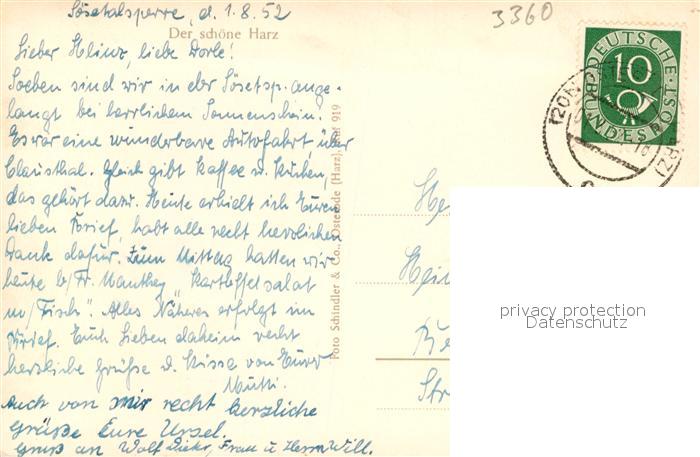 Sösetalsperre, d. 1.8.52
3360
Der schöne Harz
Lieber Heinz, liebe Dorle!
Soeben sind wir in der Sösetsp. ange-
langt bei herrlichem Sonnenschein.
Es war eine wunderbare Autofahrt über
Clausthal. Gleich gibt Kaffee u. Kuchen,
das gehört dazu. Heute erhielt ich Euren
lieben Brief, habt alle recht herzlichen
Dank dafür. Zum Mittag hatten wir
heute b/Fr. Manthey „Kartoffelsalat
m/Fisch". Alles Nähere erfolgt im
Brief. Euch Lieben daheim recht
herzliche Grüße u. Küsse von Eurer
Mutti.
Auch von mir recht herzliche
Grüße Eure Ursel.
Gruß an Wolf Dieter, Frau u Herrn Will.
Foto Schindler & Co., Osterode (Harz), 919
DEUTSCHE
10
BUNDESPOST
(20b)
RZ)
He
Hein
Be
Str
privacy protection
Datenschutz